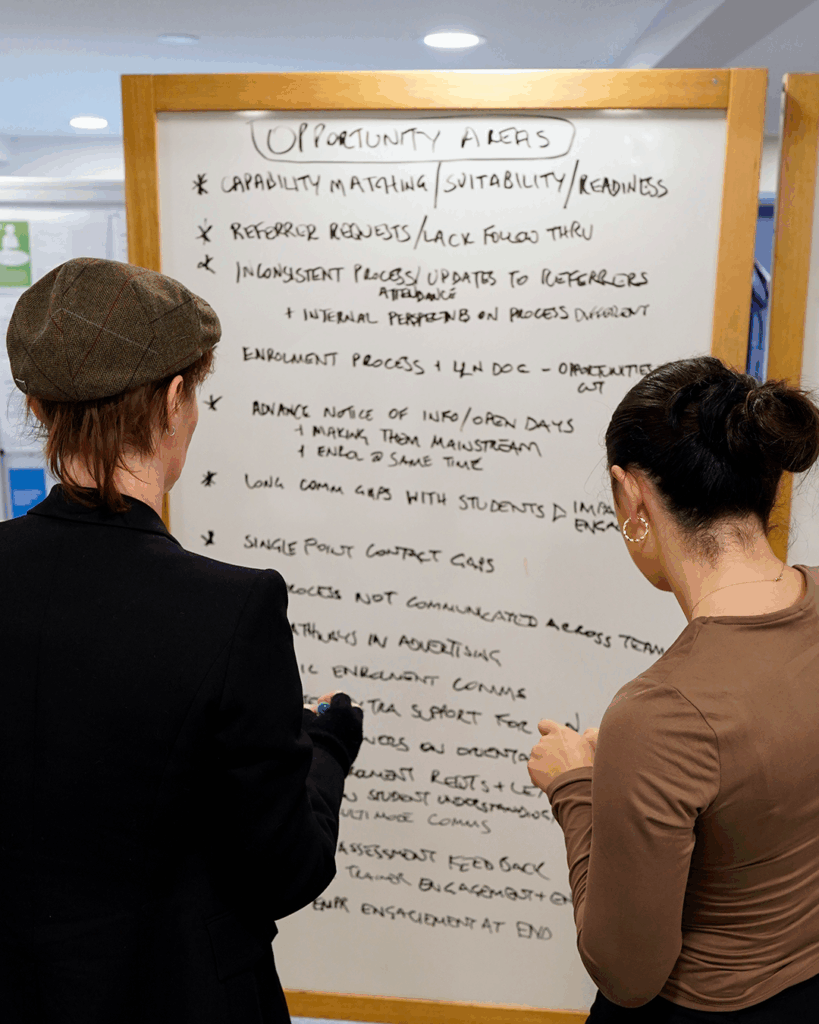 OPPORTUNITY AREAS
* CAPABILITY MATCHING/SUITABILITY/READINESS
* REFERRER REQUESTS/LACK FOLLOW THRU
* INCONSISTENT PROCESS/UPDATES TO REFERRERS
ATTENDANCE
+ INTERNAL ON PROCESS DIFFERENT
ENROLMENT PROCESS + LLN DOC - OPPORTUNITIES
CUT
* ADVANCE NOTICE OF INFO/OPEN DAYS
+ MAKING THEM MAINSTREAM
+ ENROL @ SAME TIME
* LONG COMM GAPS WITH STUDENTS ▷
* SINGLE POINT CONTACT GAPS
NOT COMMUNICATED ACROSS TEAM
IN ADVERTISING
ENROLMENT COMMS
SUPPORT FOR
ON
+
STUDENT UNDERSTANDING
COMMS
ASSESSMENT FEEDBACK
TRAINER ENGAGEMENT +
ENGAGEMENT AT END